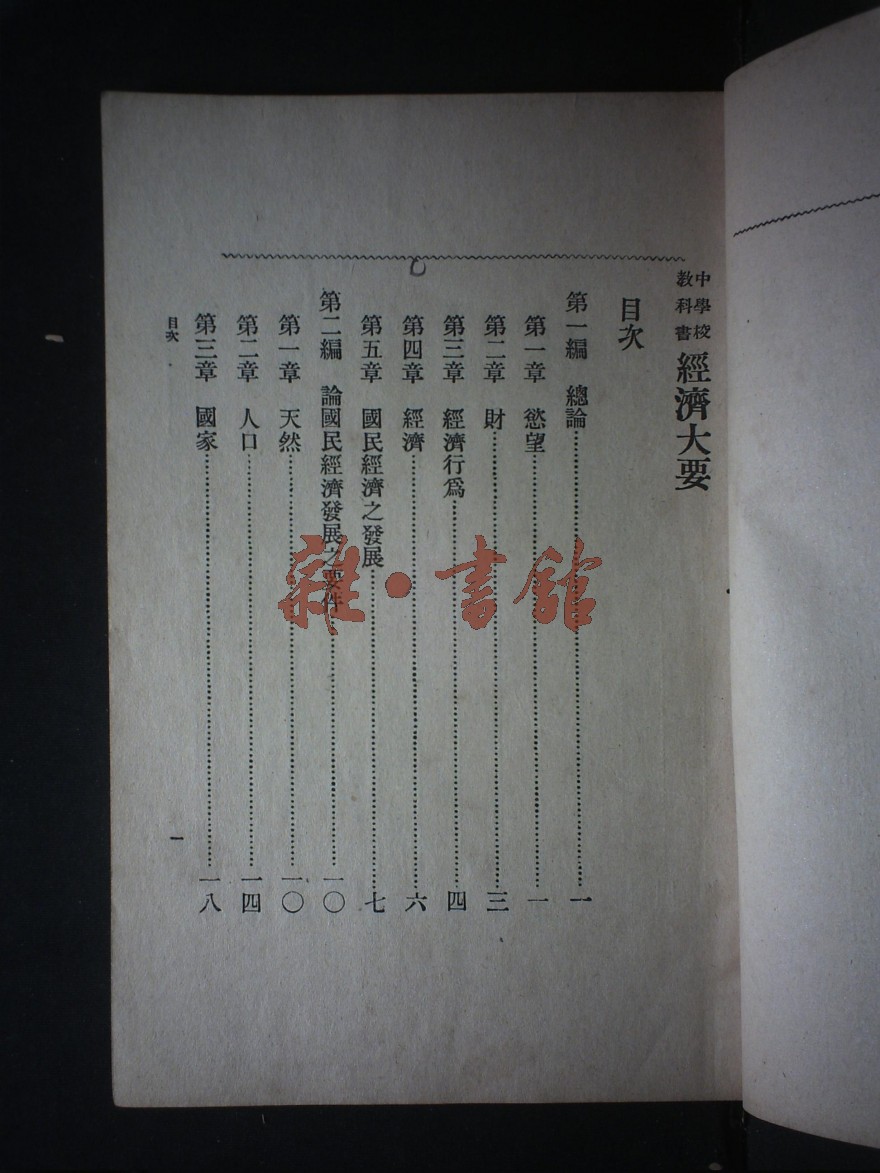 中學校
教科書
經濟大要
目次
第一編 總論…………一
第一章 慾望…………一
第二章 財…………三
第三章 經濟行爲…………四
第四章 經濟…………六
第五章 國民經濟之發展…………七
第二編 論國民經濟發展之要件…………一〇
第一章 天然…………一〇
第二章 人口…………一四
第三章 國家…………一八
目次
一
雜·書館